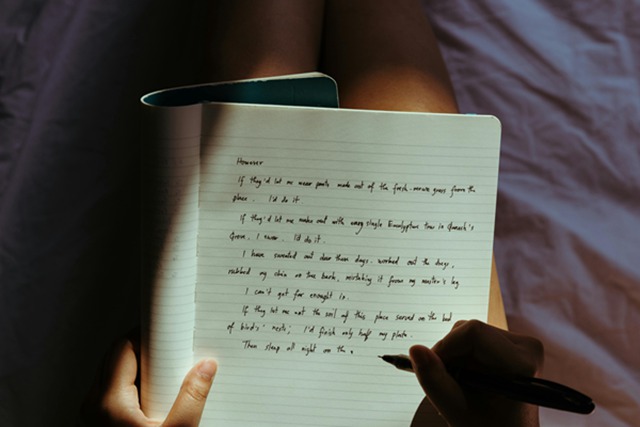 However
If they'd let me wear pants made out of the fresh-mown grass from the
place. I'd do it
If they'd let me make out with every single Eucalyptus tree in Queach's
Grove, I swear. I'd do it.
I have sweated out dear them days. worked out the dregs,
rubbed my chin on the bark, mistaking it from my master's leg
I can't get far enough in.
If they let me eat the soil of this place served on the bed
of birds' nests; I'd finish only half my plate.
Then sleep all night on the